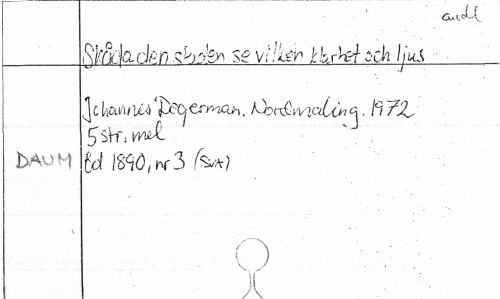 andl
Skåda den staden se vilken klarhet och ljus
Johannes Dagerman. Nordmaling. 1972
5 str. mel
DAUM Ed 1890, nr 3 (Svt)